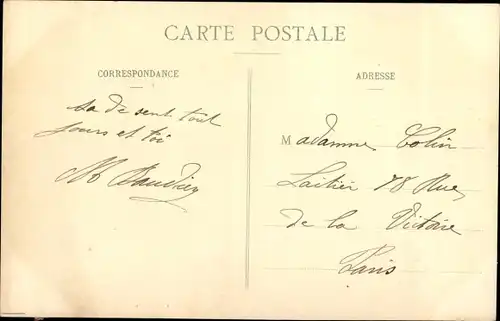 CARTE POSTALE
CORRESPONDANCE
sa de sent tout
jours et toi
ADRESSE
Madamme Colin
Laitier 78 Rue
de la Victoire
Paris